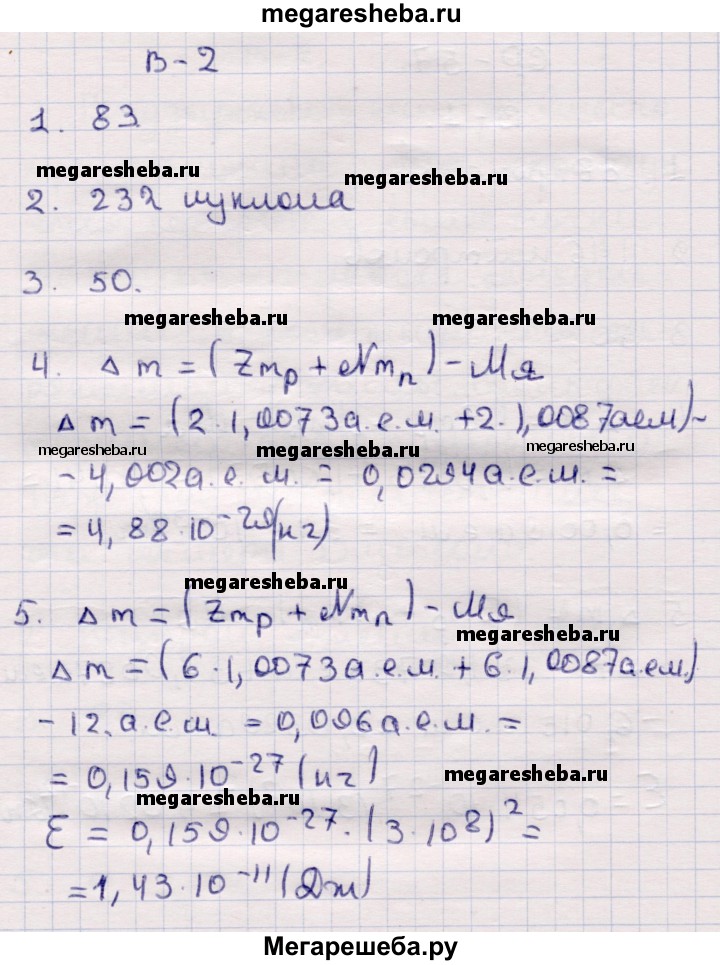 megaresheba.ru
В-2
1. 83
megaresheba.ru
megaresheba.ru
2. 232 нуклона
3. 50.
megaresheba.ru
megaresheba.ru
4. Δm = (Zmp + Nmn) - Мя
Δm = (2·1,0073а.е.м. + 2·1,0087аем) -
megaresheba.ru
megaresheba.ru
- 4,002а.е.м. = 0,0294а.е.м. =
= 4,88·10⁻²⁹(кг)
megaresheba.ru
5. Δm = (Zmp + Nmn) - Мя
megaresheba.ru
Δm = (6·1,0073а.е.м. + 6·1,0087а.е.м)
- 12.а.е.м. = 0,096а.е.м. =
= 0,159·10⁻²⁷(кг)
megaresheba.ru
megaresheba.ru
E = 0,159·10⁻²⁷·(3·10⁸)² =
= 1,43·10⁻¹¹(Дж)
Мегарешеба.ру